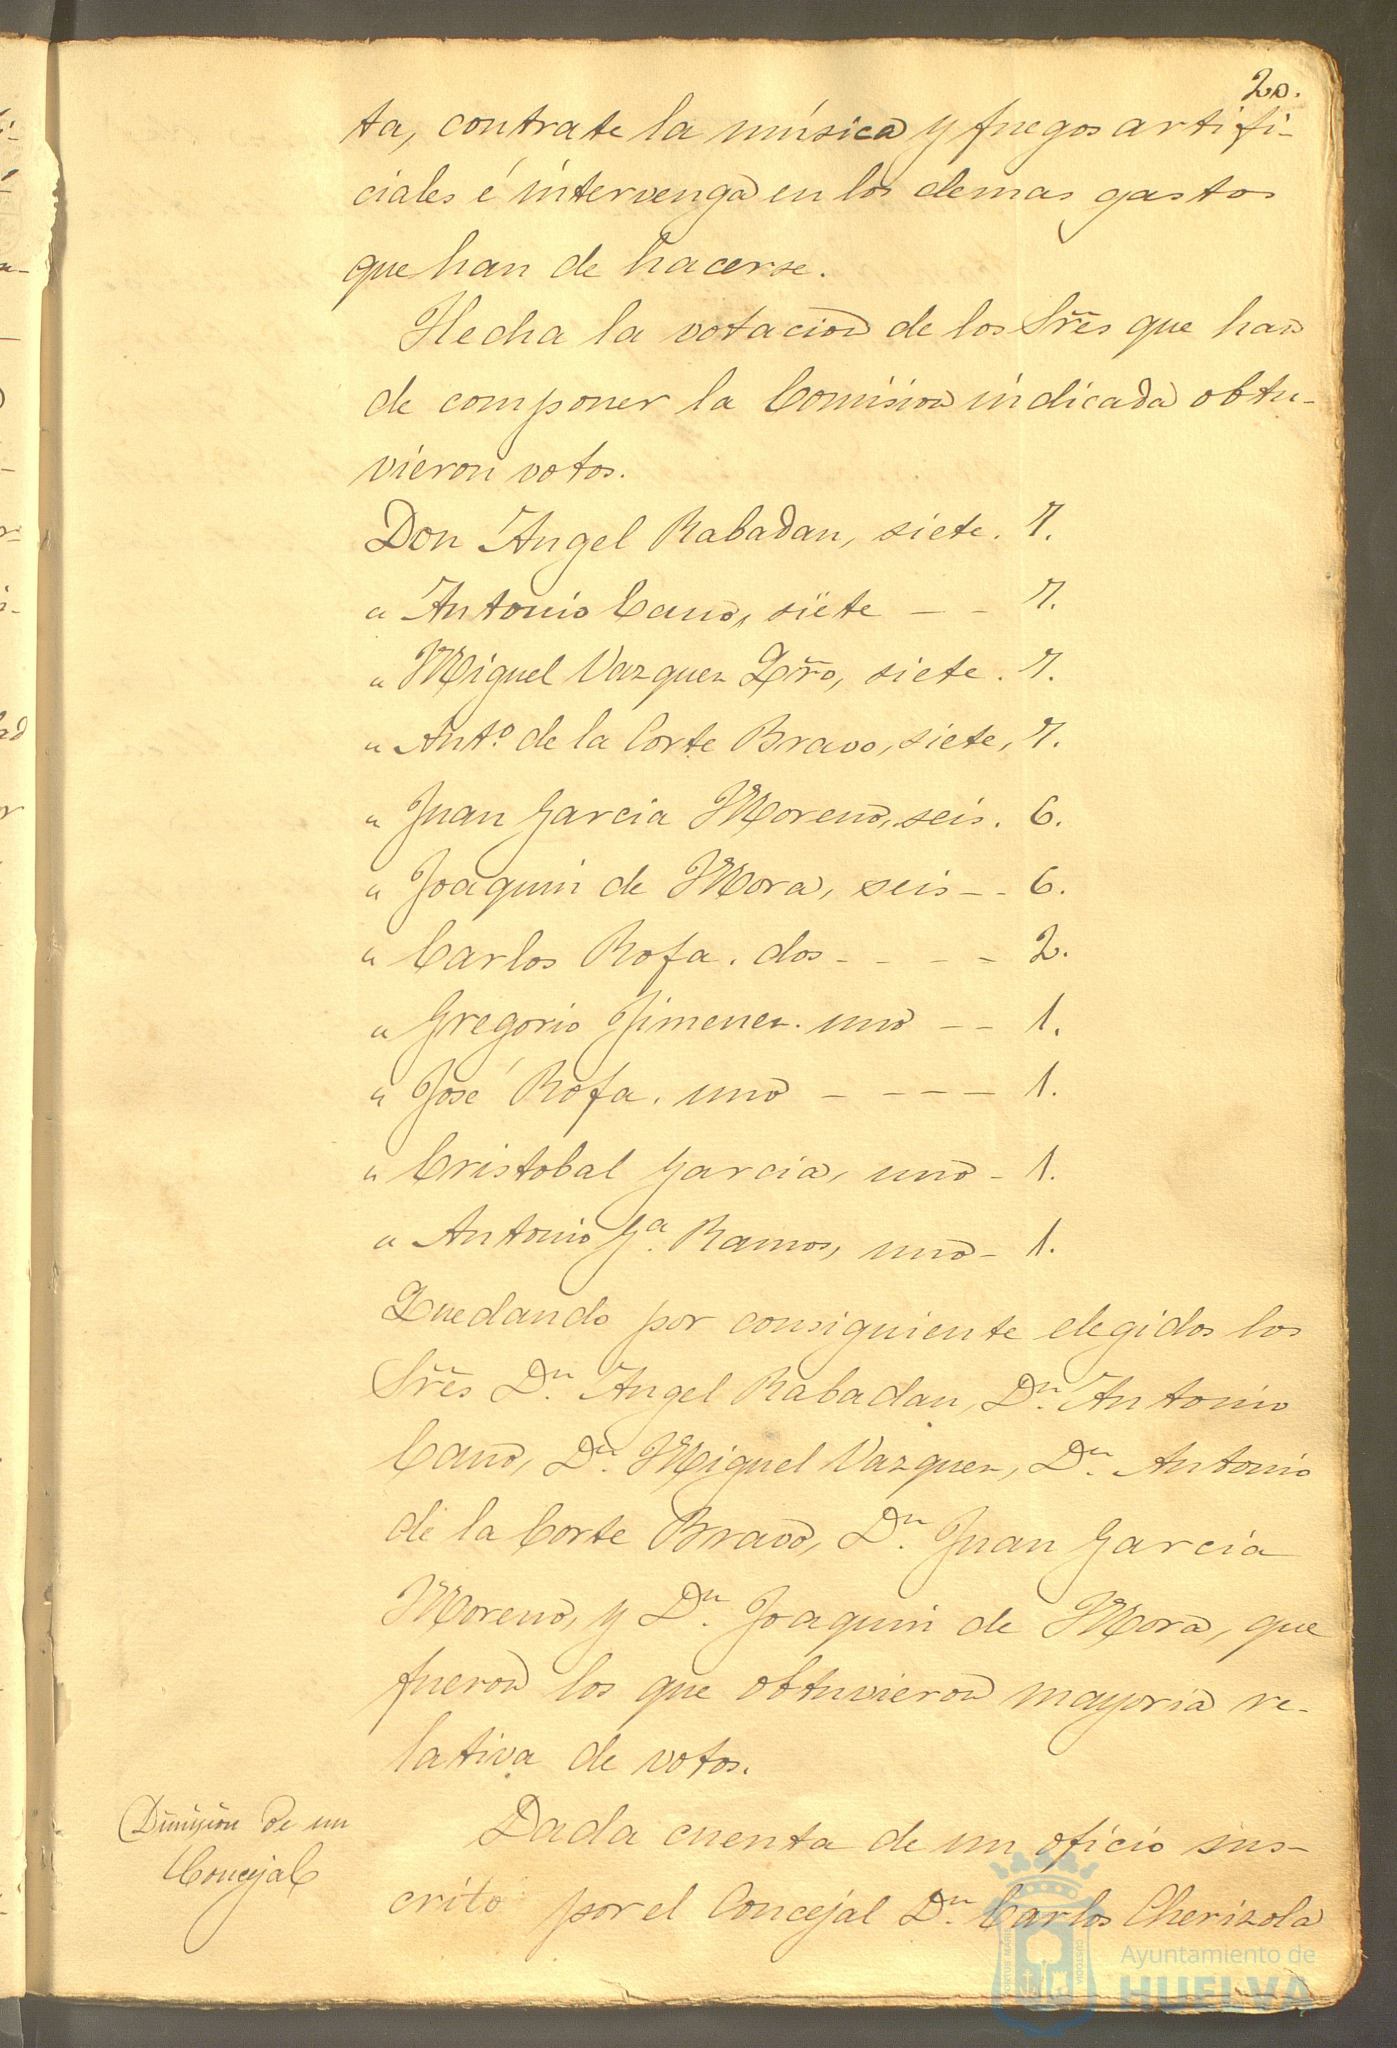 20.
ta, contrate la música y fuegos artifi-
ciales é intervenga en los demas gastos
que han de hacerse.
Hecha la votacion de los Sres que han
de componer la Comision indicada obtu-
vieron votos.
Don Angel Rabadan, siete. 7.
" Antonio Cano, siete - - 7.
" Miguel Vazquez Qro, siete. 7.
" Anto. de la Corte Bravo, siete, 7.
" Juan Garcia Moreno, seis. 6.
" Joaquin de Mora, seis - - 6.
" Carlos Rofa. dos - - - - 2.
" Gregorio Jimenez. uno - - 1.
" José Rofa. uno - - - - 1.
" Cristobal Garcia, uno - 1.
" Antonio Ga. Ramos, uno - 1.
Quedando por consiguiente elegidos los
Sres Dn. Angel Rabadan, Dn. Antonio
Cano, Dn. Miguel Vazquez, Dn. Antonio
de la Corte Bravo, Dn. Juan Garcia
Moreno, y Dn. Joaquin de Mora, que
fueron los que obtuvieron mayoria re-
lativa de votos.
Dimision de un
Concejal
Dada cuenta de un oficio sus-
crito por el Concejal Dn. Carlos Cherizola
Ayuntamiento de
HUELVA